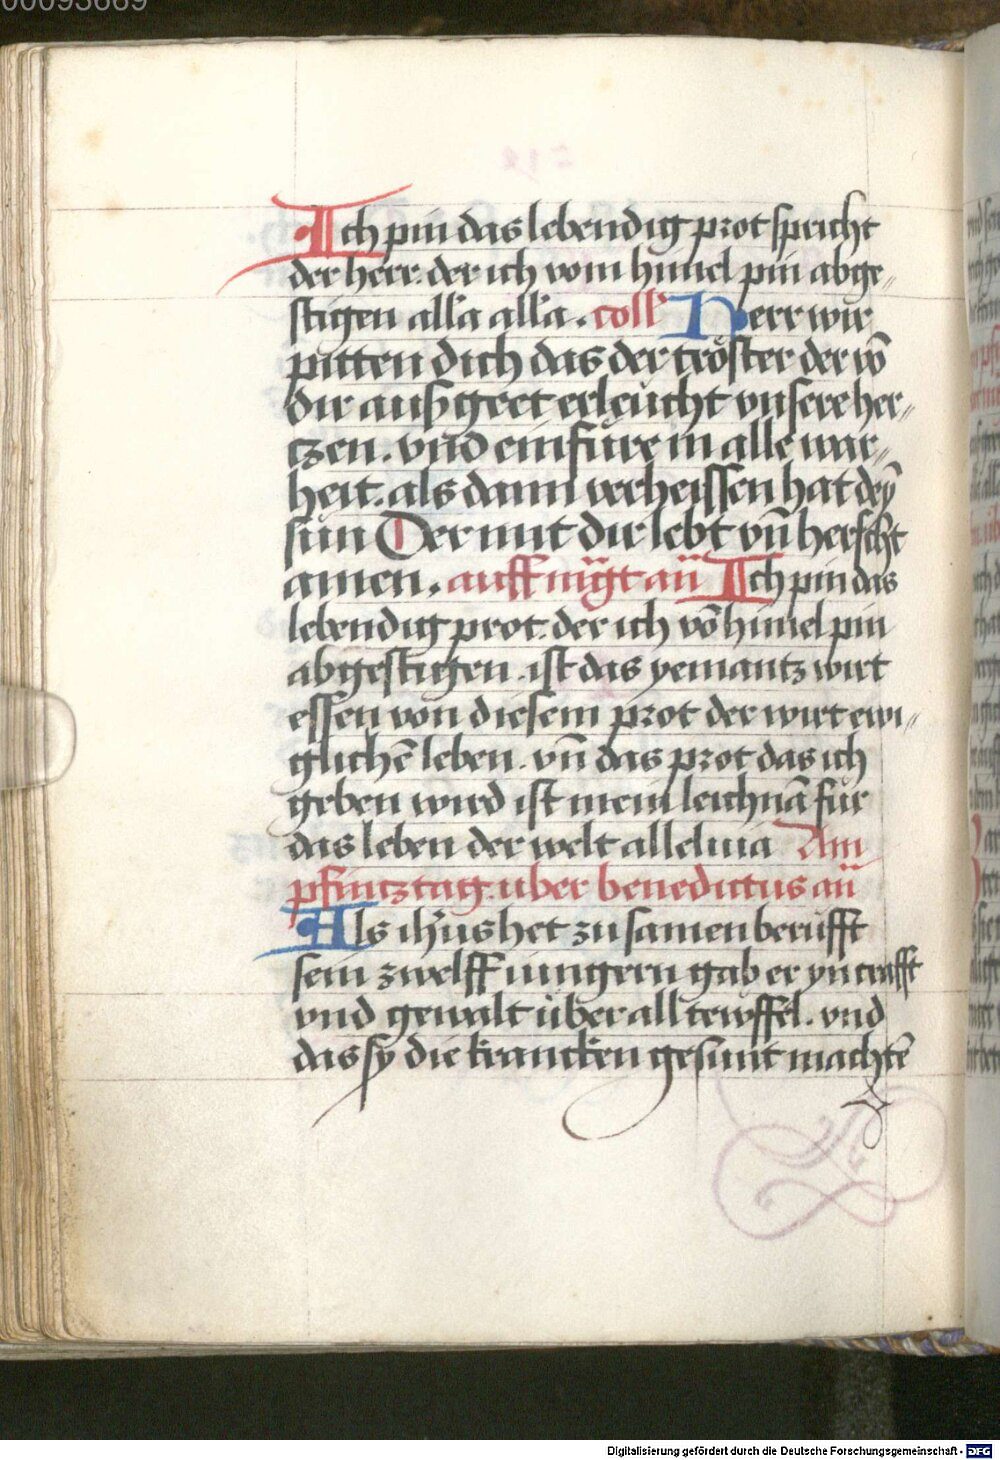 00093669
Ich pin das lebendig prot spricht
der herr. der ich vom himel pin abge„
stigen all'a all'a. coll' Herr wir
pitten dich das der tröster der vō
dir außgeet erleücht vnsere her„
tzen. vnd einfüre in alle war„
heit. als dann verheissen hat deÿ
sun Der mit dir lebt vn̄ herscht
amen. auff mg̃t an̄ Ich pin das
lebendig prot. der ich vō himel pin
abgestigen. ist das yemantz wirt
essen von diesem prot der wirt ewi„
glichē leben. vn̄ das prot das ich
geben wird ist mein leichnā für
das leben der welt alleluia Am
pfintztag. uber benedictus an̄
Als ih̄us het zu samen berüfft
sein zwelff iungern gab er yn crafft
vnd gewalt über all tewffel. vnd
das sy die krancken gesunt machtē
Digitalisierung gefördert durch die Deutsche Forschungsgemeinschaft - DFG